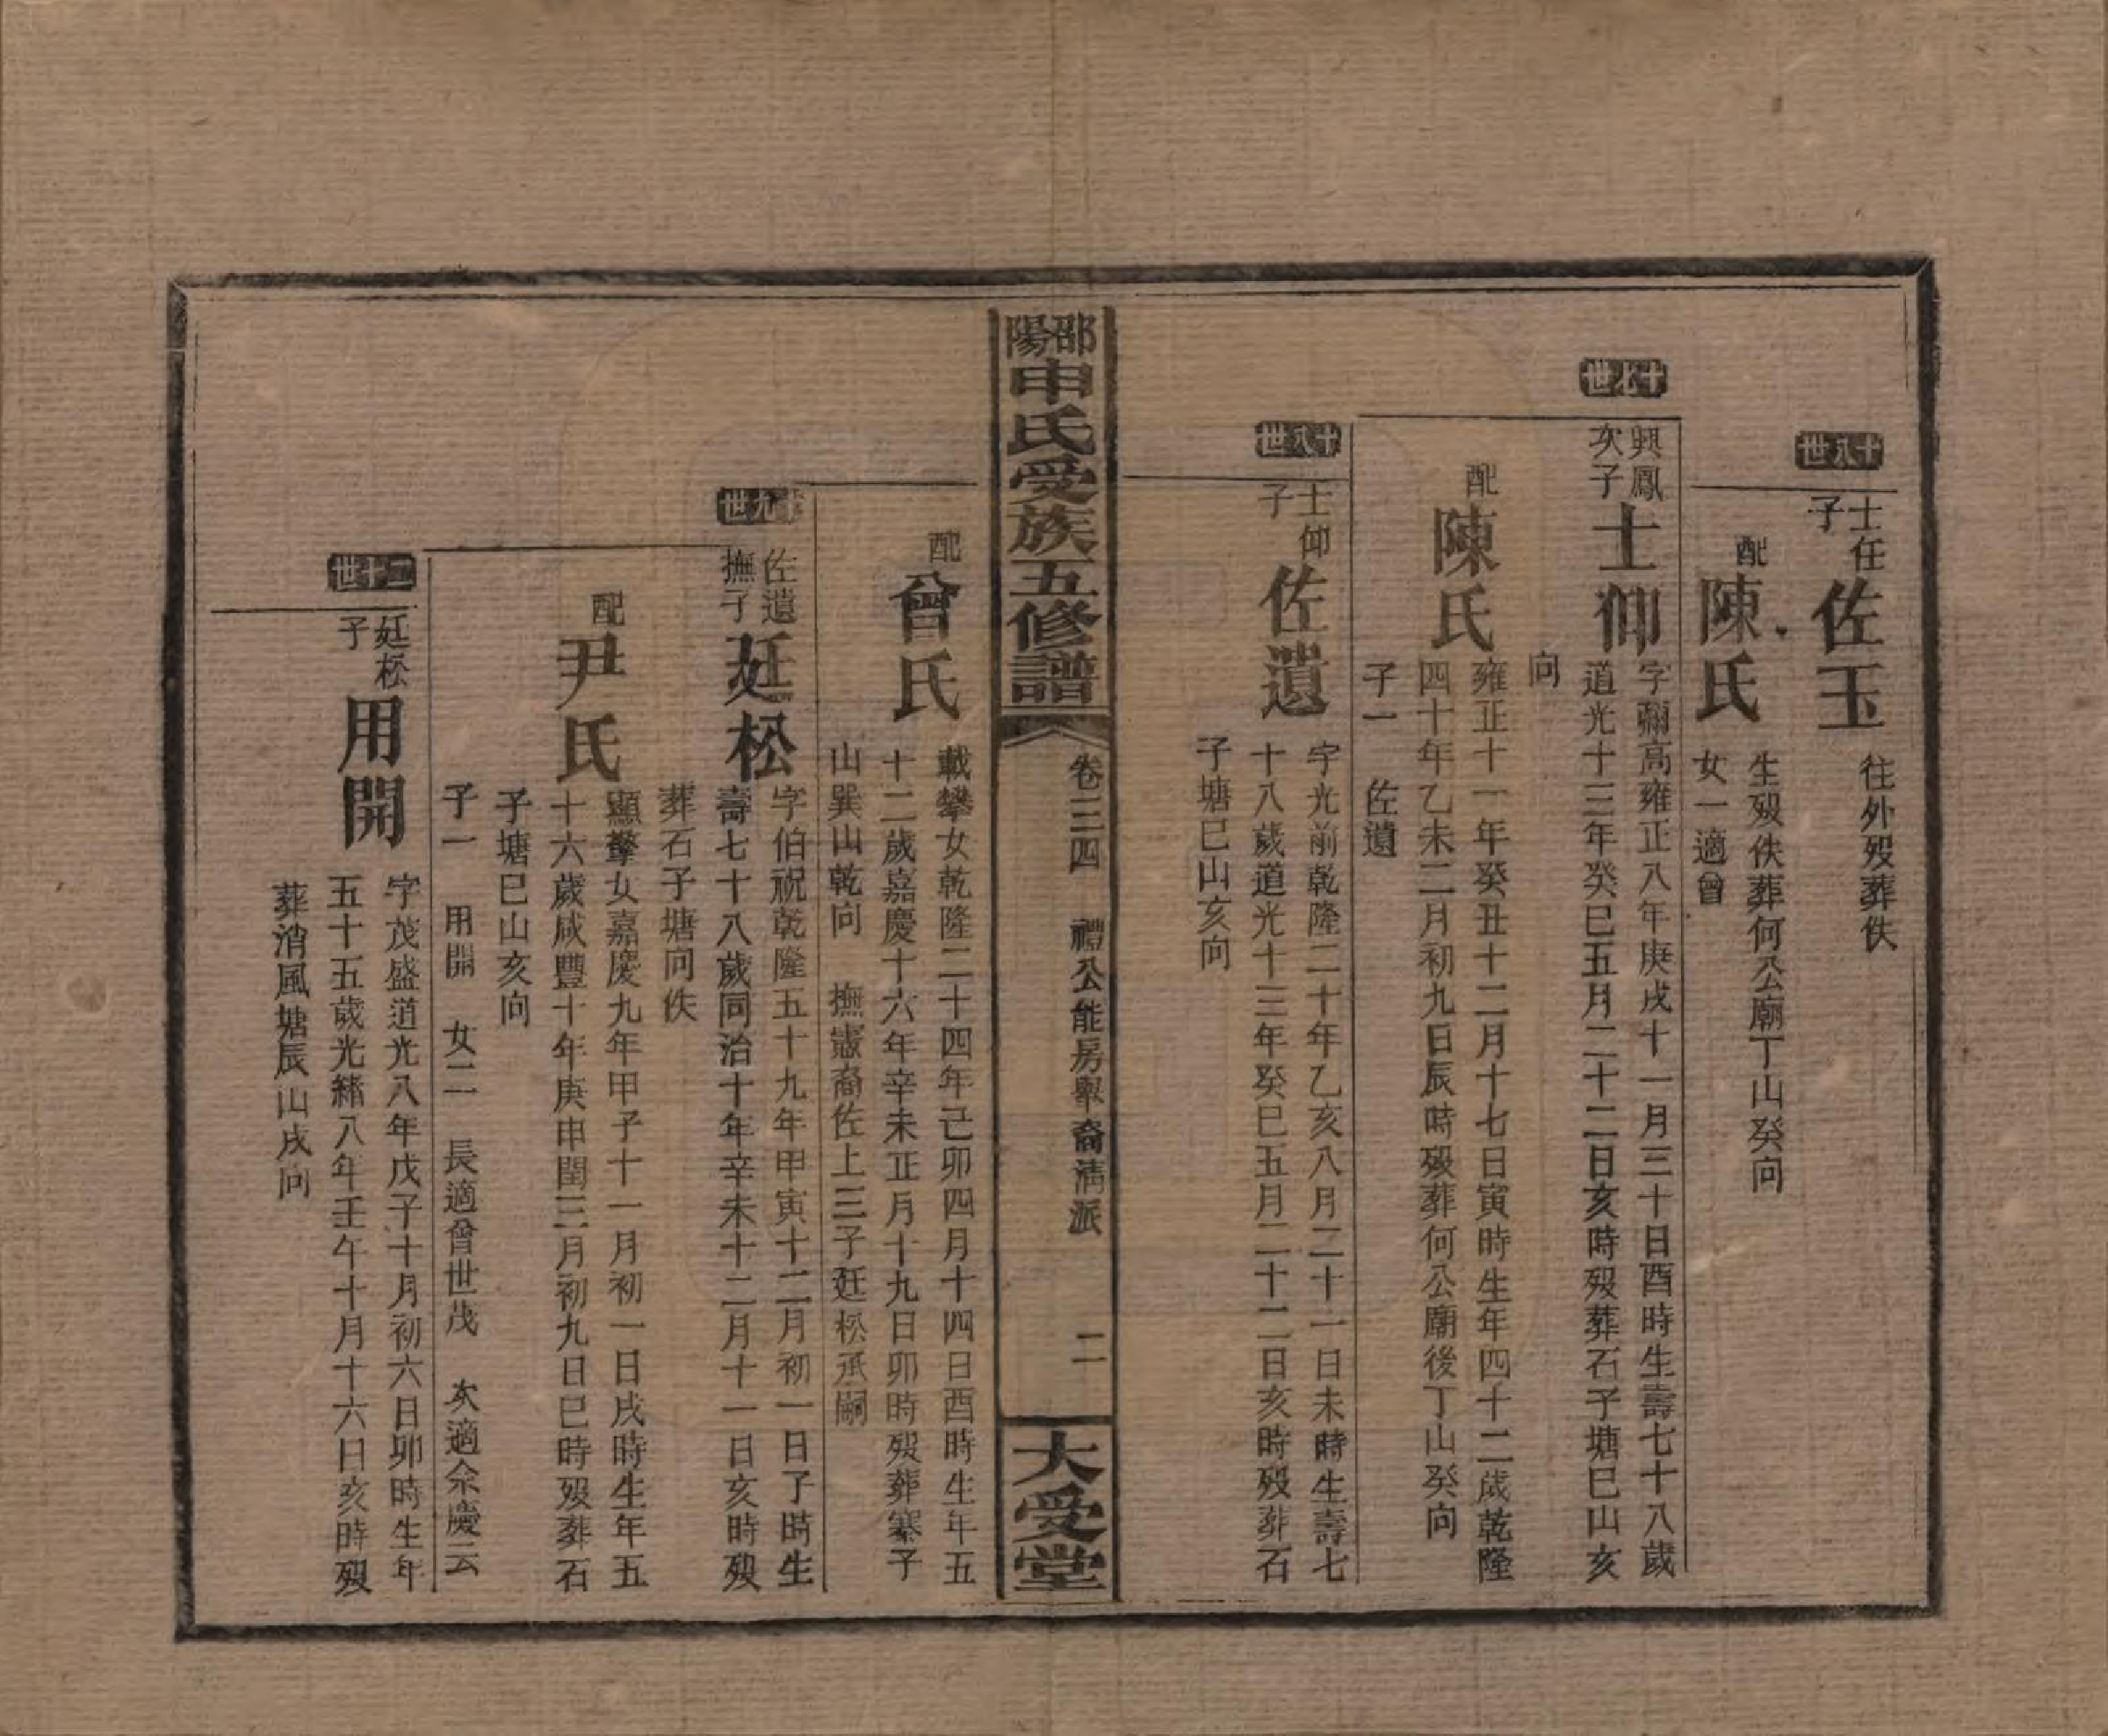 十八世
士任
子
佐玉
往外歿葬佚
配
陳氏
生歿佚葬何公廟丁山癸向
女一適曾
十七世
興鳳
次子
士仰
字彌高雍正八年庚戌十一月三十日酉時生壽七十八歲
道光十三年癸巳五月二十二日亥時歿葬石子塘巳山亥
向
配
陳氏
雍正十一年癸丑十二月十七日寅時生年四十二歲乾隆
四十年乙未二月初九日辰時歿葬何公廟後丁山癸向
子一　佐遺
十八世
士仰
子
佐遺
字光前乾隆二十年乙亥八月二十一日未時生壽七
十八歲道光十三年癸巳五月二十二日亥時歿葬石
子塘巳山亥向
邵陽申氏受族五修譜
卷三四　禮公能房舉裔清派　二
大受堂
配
曾氏
載攀女乾隆二十四年己卯四月十四日酉時生年五
十二歲嘉慶十六年辛未正月十九日卯時歿葬寨子
山巽山乾向　撫憲裔佐上三子廷松承嗣
十九世
佐遺
撫子
廷松
字伯祝乾隆五十九年甲寅十二月初一日子時生
壽七十八歲同治十年辛未十二月十一日亥時歿
葬石子塘向佚
配
尹氏
顯擎女嘉慶九年甲子十一月初一日戌時生年五
十六歲咸豐十年庚申閏三月初九日巳時歿葬石
子塘巳山亥向
子一　用開　女二　長適曾世茂　次適佘慶云
二十世
廷松
子
用開
字茂盛道光八年戊子十月初六日卯時生年
五十五歲光緒八年壬午十月十六日亥時歿
葬消風塘辰山戌向